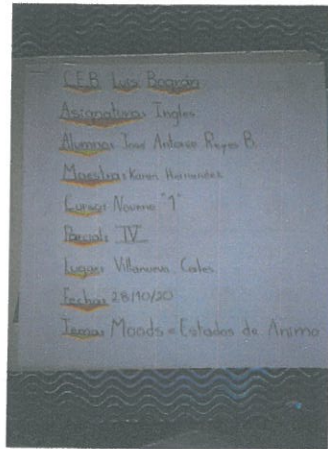 C.E.B. Luis Bográn
Asignatura: Ingles
Alumno: Jose Antonio Reyes B.
Maestra: Karen Hernandez
Curso: Noveno "1"
Parcial: IV
Lugar: Villanueva, Cortes
Fecha: 28/10/20
Tema: Moods = Estados de Animo